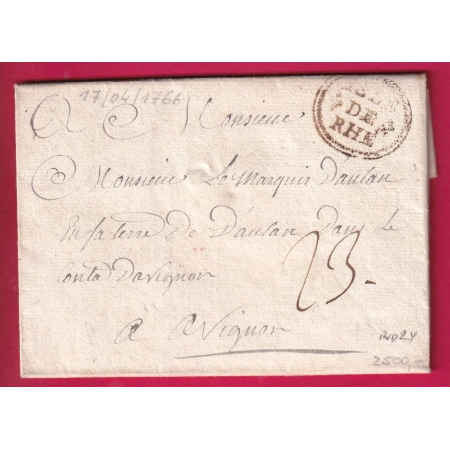 17/04/1766
ISLE
DE
RHE
A Monsieur
Monsieur Le Marquis Daulan
En sa terre de D'aulan dans Le
Conta Davignon
23.
a avignon
n°24
2500,-